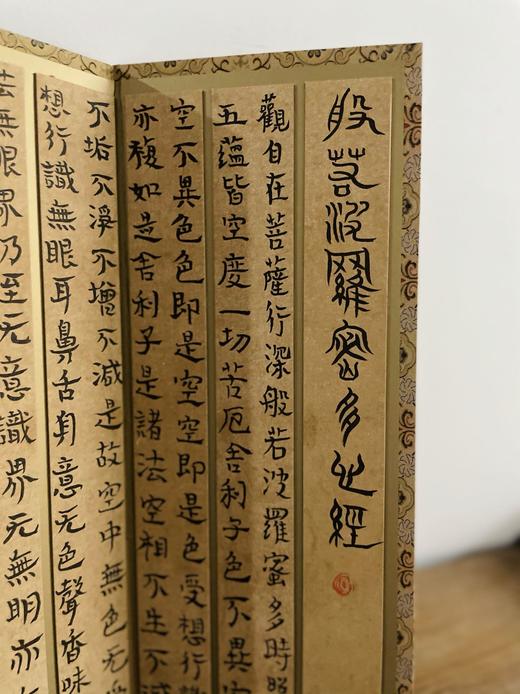 般若波羅蜜多心經
觀自在菩薩行深般若波羅蜜多時照
五蘊皆空度一切苦厄舍利子色不異空
空不異色色即是空空即是色受想行識
亦複如是舍利子是諸法空相不生不滅
不垢不淨不增不減是故空中無色无
想行識無眼耳鼻舌身意无色聲香味
無眼界乃至无意識界无無明亦